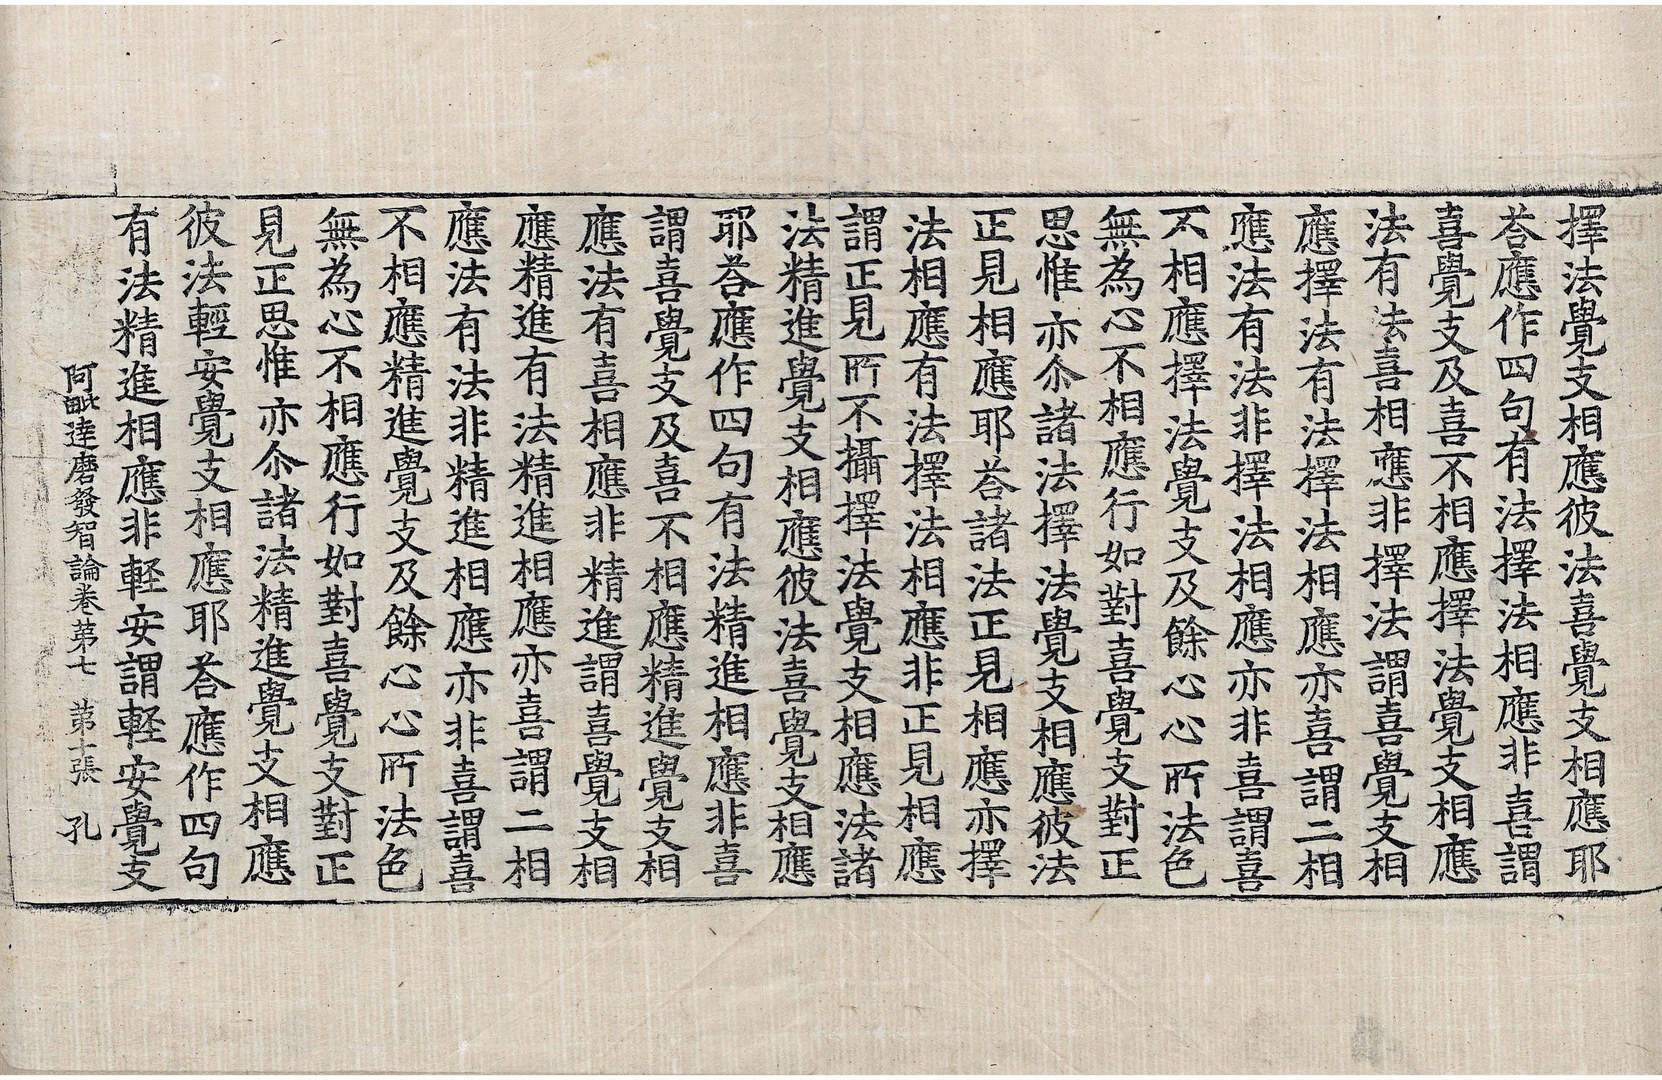 擇法覺支相應彼法喜覺支相應耶
荅應作四句有法擇法相應非喜謂
喜覺支及喜不相應擇法覺支相應
法有法喜相應非擇法謂喜覺支相
應擇法有法擇法相應亦喜謂二相
應法有法非擇法相應亦非喜謂喜
不相應擇法覺支及餘心心所法色
無為心不相應行如對喜覺支對正
思惟亦尒諸法擇法覺支相應彼法
正見相應耶荅諸法正見相應亦擇
法相應有法擇法相應非正見相應
謂正見所不攝擇法覺支相應法諸
法精進覺支相應彼法喜覺支相應
耶荅應作四句有法精進相應非喜
謂喜覺支及喜不相應精進覺支相
應法有喜相應非精進謂喜覺支相
應精進有法精進相應亦喜謂二相
應法有法非精進相應亦非喜謂喜
不相應精進覺支及餘心心所法色
無為心不相應行如對喜覺支對正
見正思惟亦尒諸法精進覺支相應
彼法輕安覺支相應耶荅應作四句
有法精進相應非軽安謂軽安覺支
阿毗達磨發智論卷第七 第十張 孔